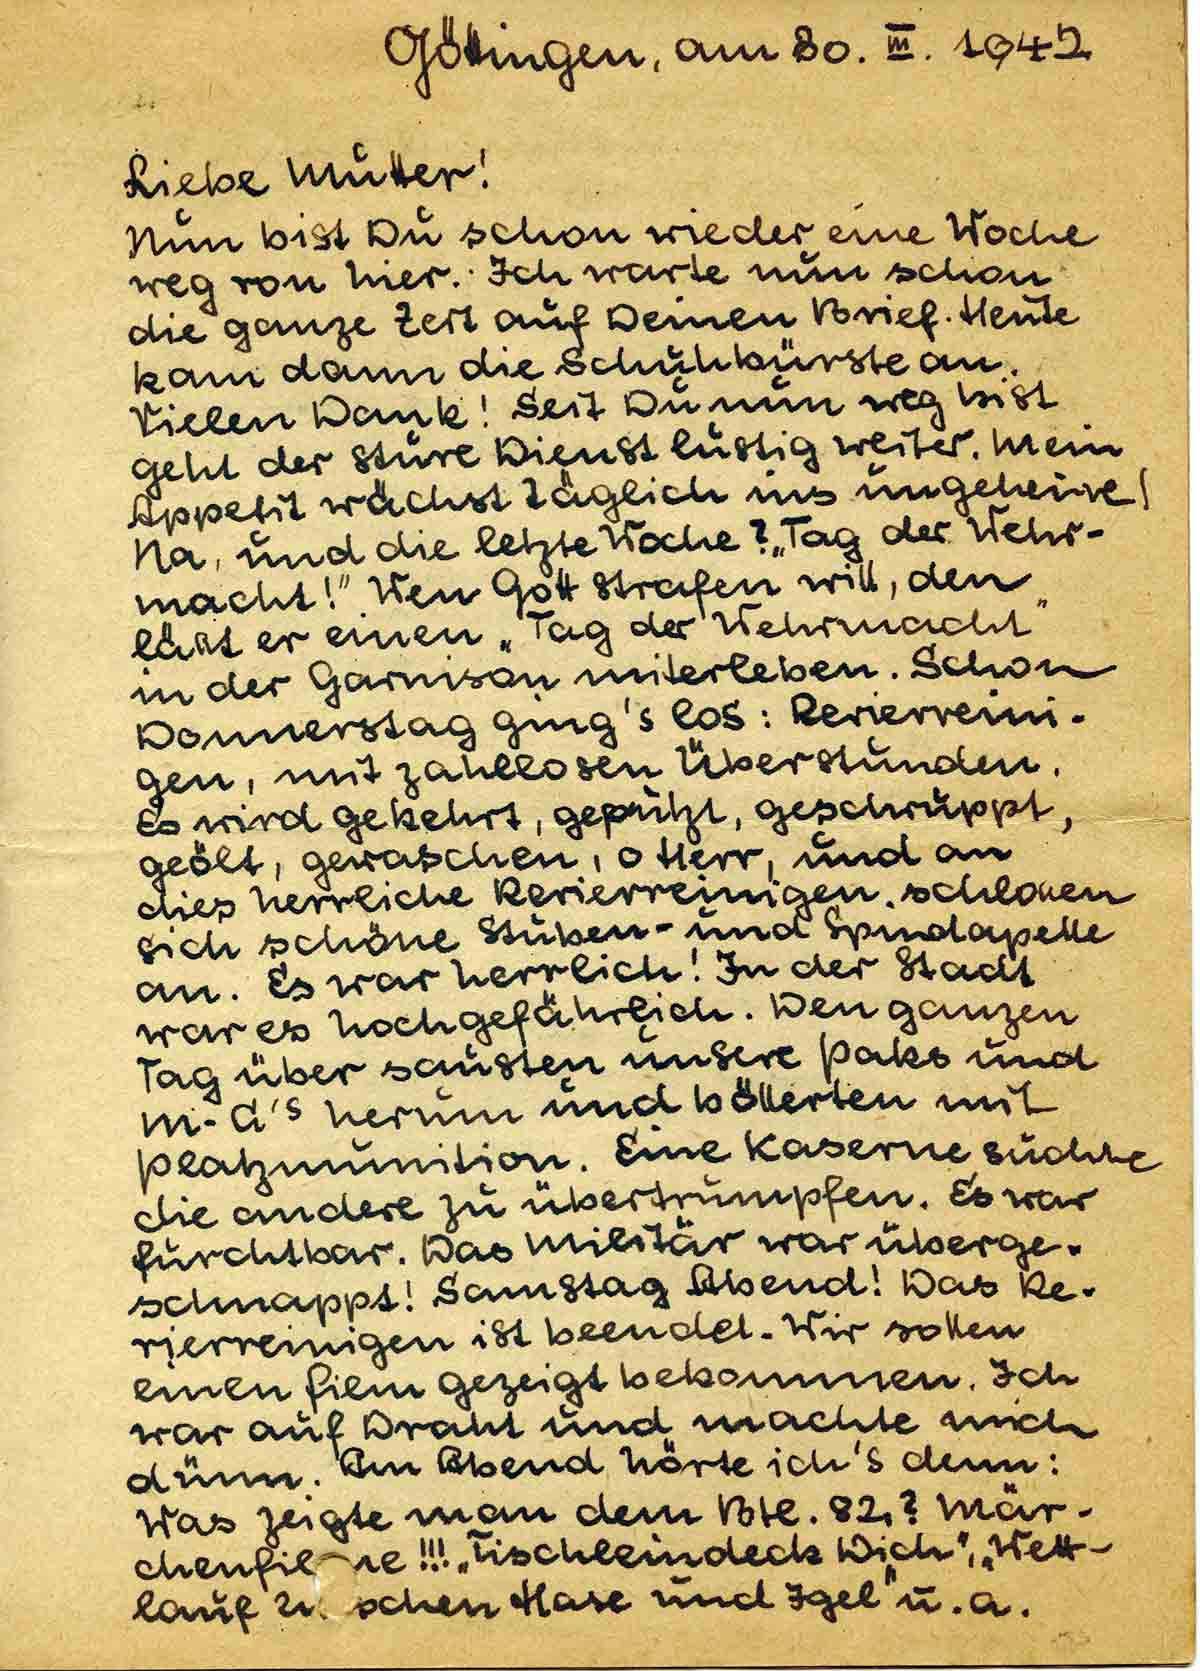 Göttingen, am 30. III. 1942
Liebe Mutter!
Nun bist Du schon wieder eine Woche
weg von hier. Ich warte nun schon
die ganze Zeit auf Deinen Brief. Heute
kam dann die Schuhbürste an.
Vielen Dank! Seit Du nun weg bist
geht der sture Dienst lustig weiter. Mein
Appetit wächst täglich ins ungeheure!
Na, und die letzte Woche? „Tag der Wehr-
macht!" Wen Gott strafen will, den
läßt er einen „Tag der Wehrmacht"
in der Garnison miterleben. Schon
Donnerstag ging's los: Revierreini-
gen, mit zahllosen Überstunden.
Es wird gekehrt, geputzt, geschruppt,
geölt, gewaschen, o Herr, und an
dies herrliche Revierreinigen schloßen
sich schöne Stuben- und Spindapelle
an. Es war herrlich! In der Stadt
war es hochgefährlich. Den ganzen
Tag über sausten unsere Paks und
M-G's herum und böllerten mit
Platzmunition. Eine Kaserne suchte
die andere zu übertrumpfen. Es war
furchtbar. Das Militär war überge-
schnappt! Samstag Abend! Das Re-
vierreinigen ist beendet. Wir sollen
einen Film gezeigt bekommen. Ich
war auf Draht und machte mich
dünn. Am Abend hörte ich's denn:
Was zeigte man dem Btl. 82,? Mär-
chenfilme!!! „Tischleindeck Dich", „Wett-
lauf zwischen Hase und Igel" u.a.